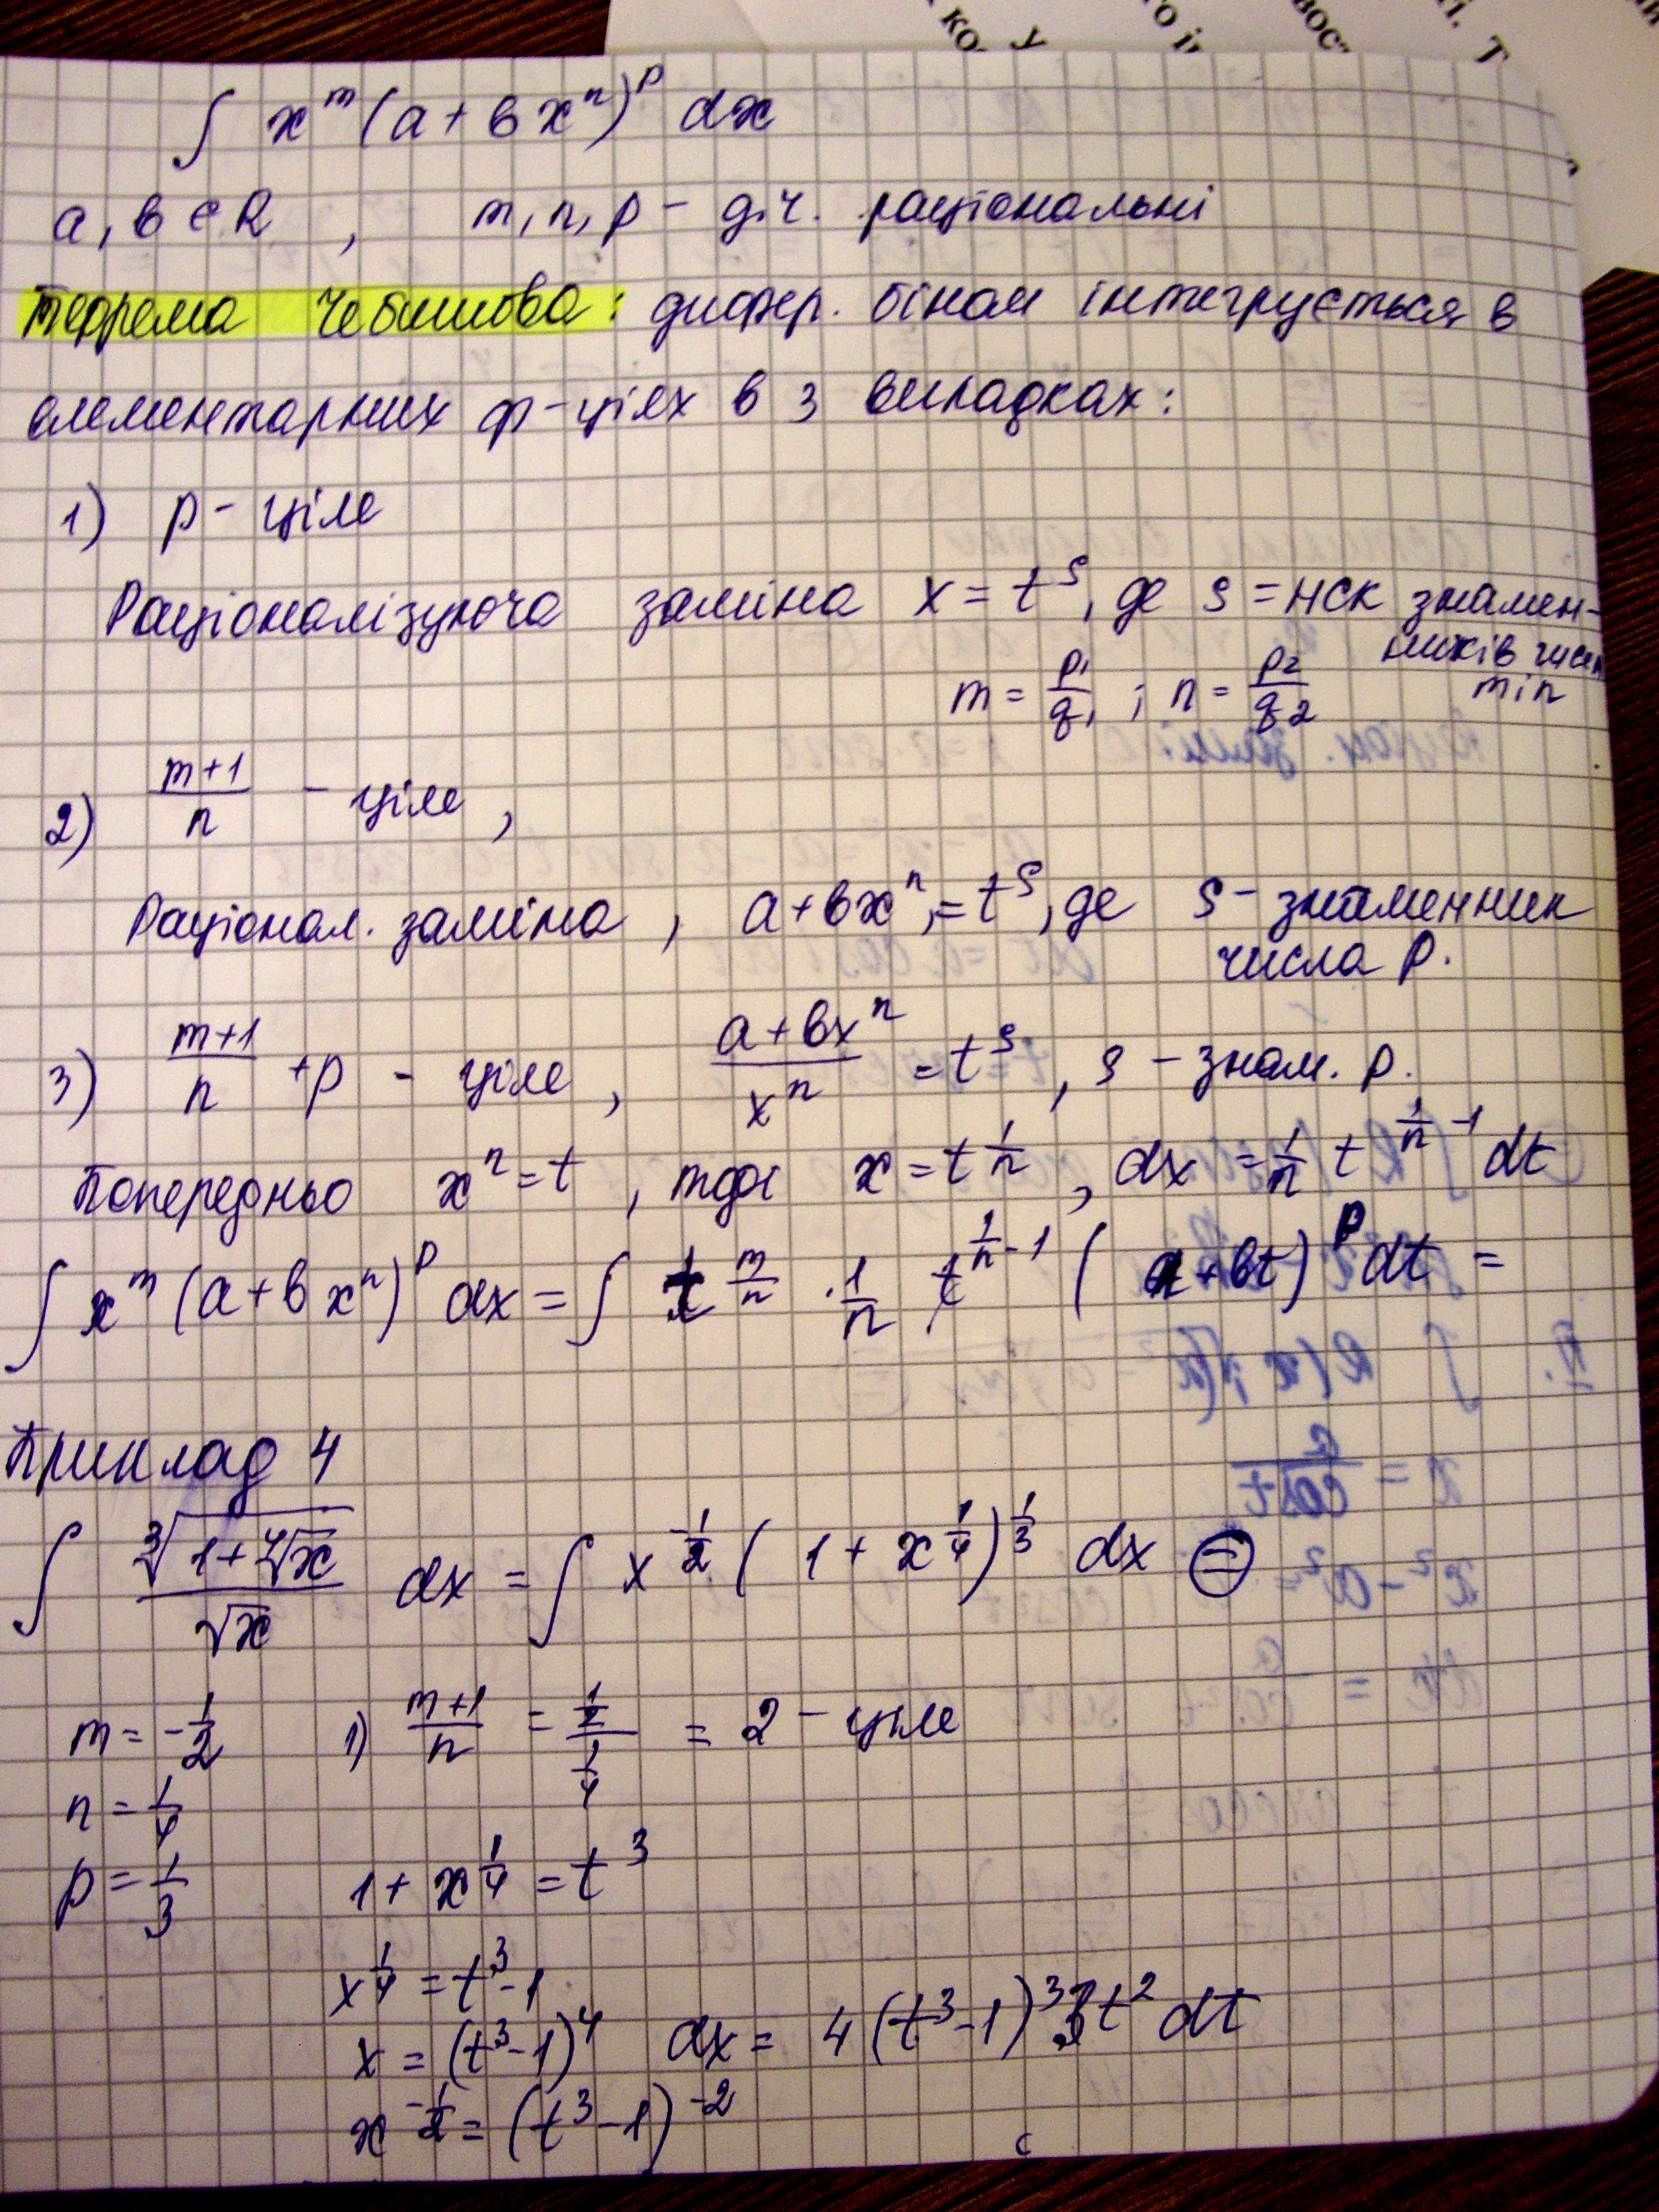 ∫ x^m (a + вx^n)^p dx
a, в ∈ R , m, n, p – д.ч. раціональні
Теорема Чебишова: дифер. біном інтегрується в
елементарних ф-ціях в 3 випадках:
1) p – ціле
Раціоналізуюча заміна x = t^s, де s = НСК знамен-
ників чисел
m = p₁/q₁ ; n = p₂/q₂ m i n
2) (m+1)/n – ціле,
Раціонал. заміна, a + вx^n = t^s, де s – знаменник
числа p.
3) (m+1)/n + p – ціле, (a + вx^n)/x^n = t^s, s – знам. p.
Попередньо x^n = t, тоді x = t^(1/n), dx = 1/n t^(1/n - 1) dt
∫ x^m (a + вx^n)^p dx = ∫ t^(m/n) · 1/n t^(1/n - 1) (a + вt)^p dt =
Приклад 4
∫ ∛(1+∜x)/√x dx = ∫ x^(-1/2) (1 + x^(1/4))^(1/3) dx ⊜
m = -1/2 1) (m+1)/n = (1/2)/(1/4) = 2 – ціле
n = 1/4
p = 1/3 1 + x^(1/4) = t^3
x^(1/4) = t^3 - 1
x = (t^3 - 1)^4 dx = 4(t^3 - 1)^3 3t^2 dt
x^(-1/2) = (t^3 - 1)^(-2)